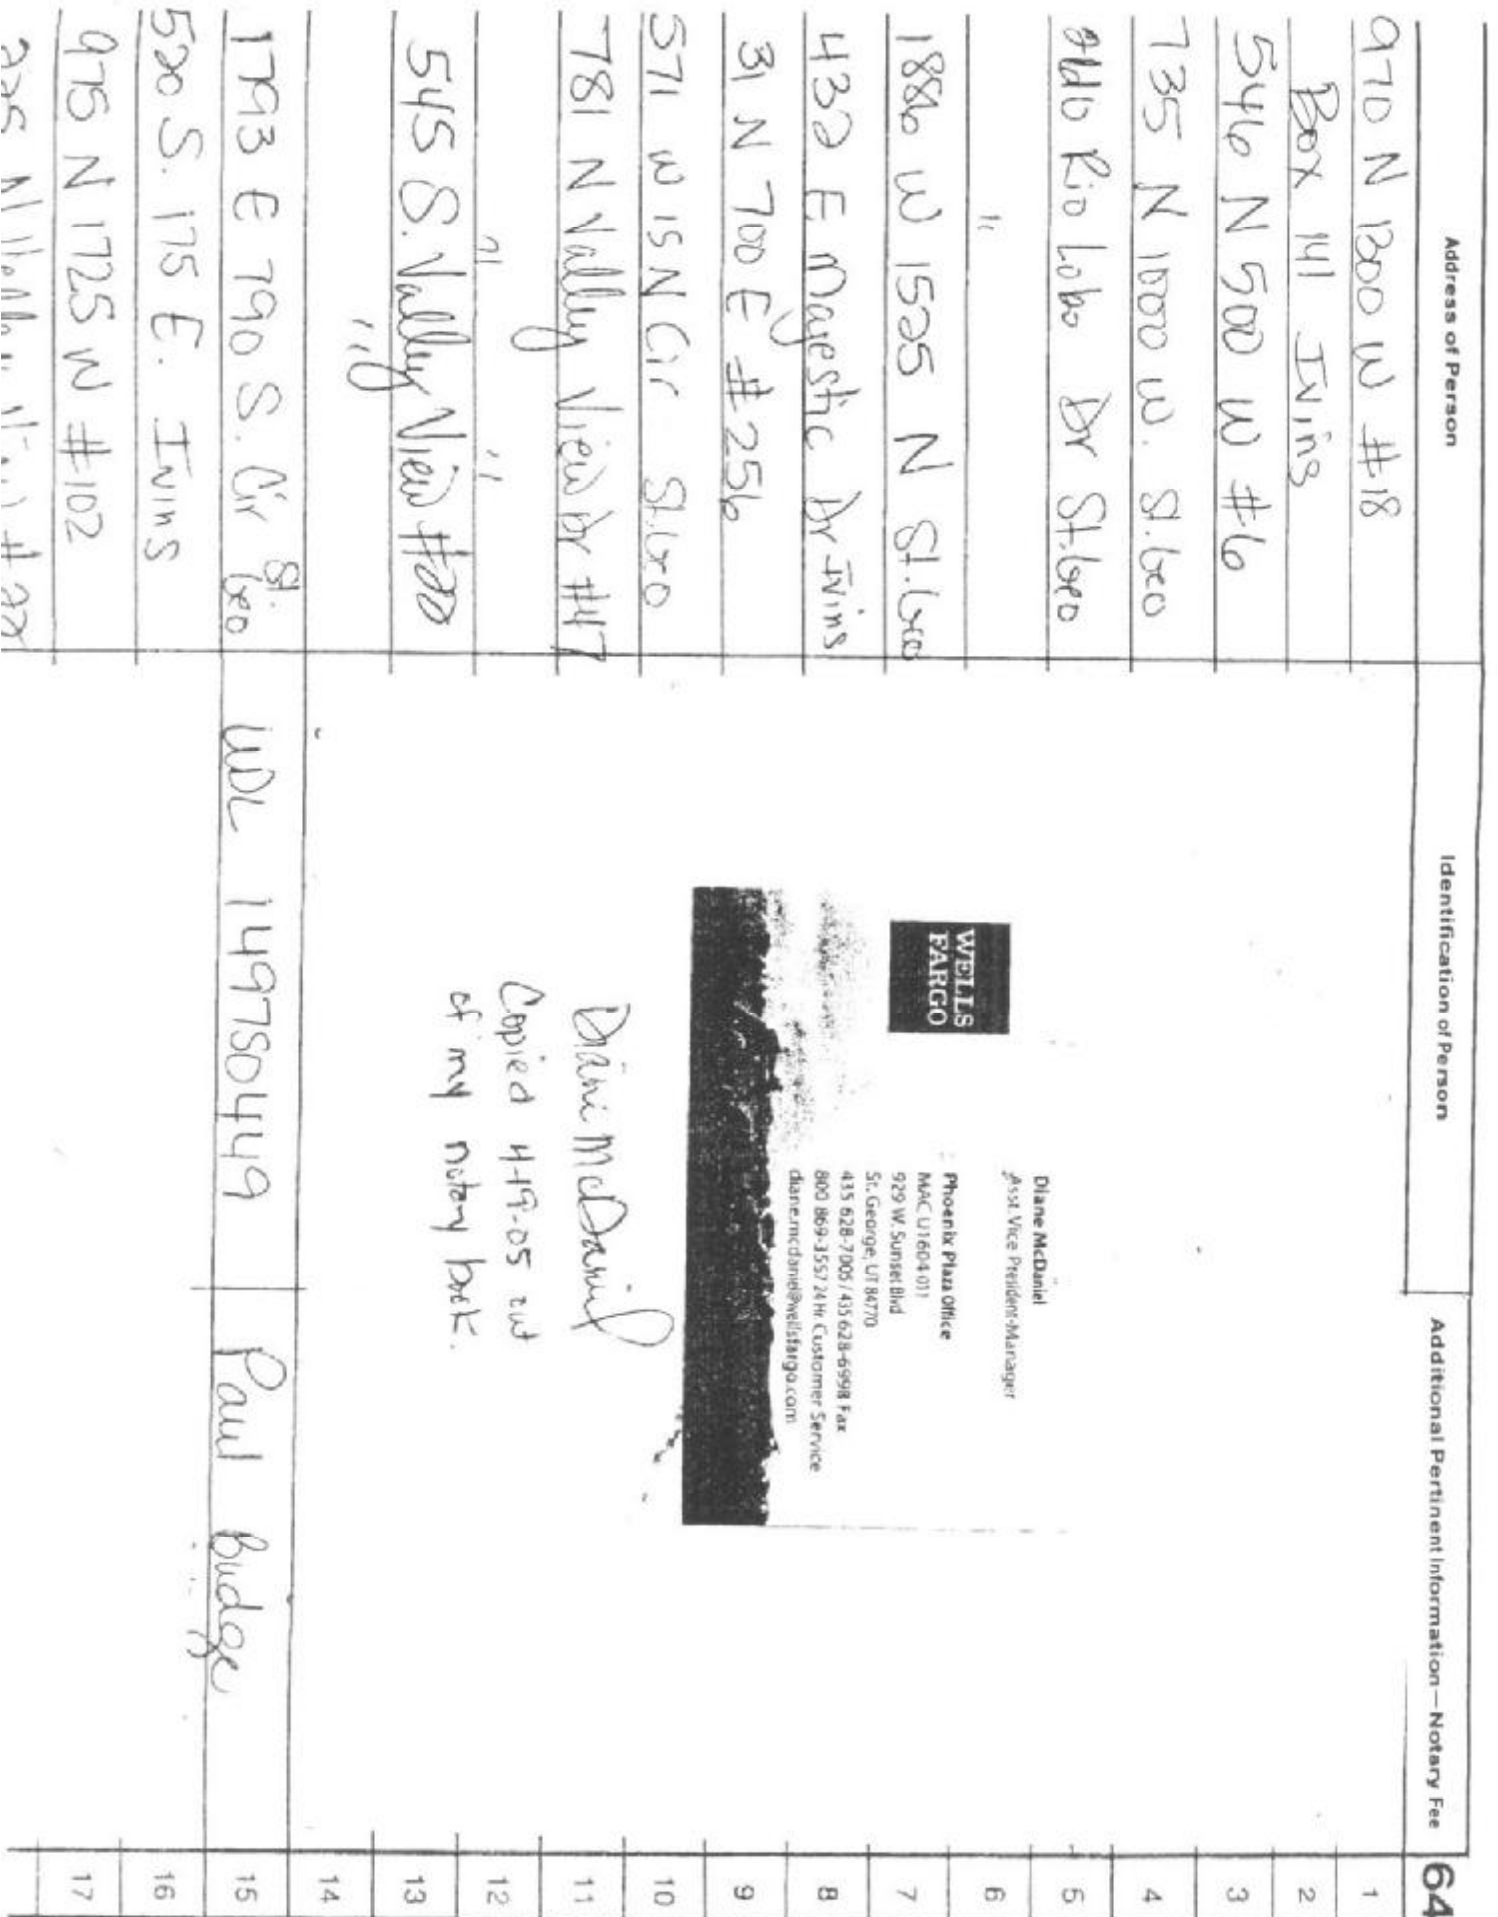 Address of Person
Identification of Person
Additional Pertinent Information—Notary Fee
64
970 N 1300 W #18
1
Box 141 Ivins
2
546 N 500 W #6
3
735 N 1000 W. St.Geo
4
Rio Lobo Dr St.Geo
5
"
6
1886 W 1525 N St.Geo
7
432 E Majestic Dr Ivins
8
31 N 700 E #256
9
571 W 15 N Cir St.Geo
10
781 N Valley View Dr #47
11
" "
12
545 S. Valley View #20
13
"
14
1793 E 790 S. Cir St. Geo
UDL 149750449
Paul Budge
15
520 S. 175 E. Ivins
16
975 N 1725 W #102
17
WELLS
FARGO
Diane McDaniel
Asst. Vice President-Manager
Phoenix Plaza Office
MAC U1604-011
929 W. Sunset Blvd
St. George, UT 84770
435 628-7005 / 435 628-6998 Fax
800 869-3557 24 Hr. Customer Service
diane.mcdaniel@wellsfargo.com
Diane McDaniel
Copied 4-19-05 out
of my notary book.